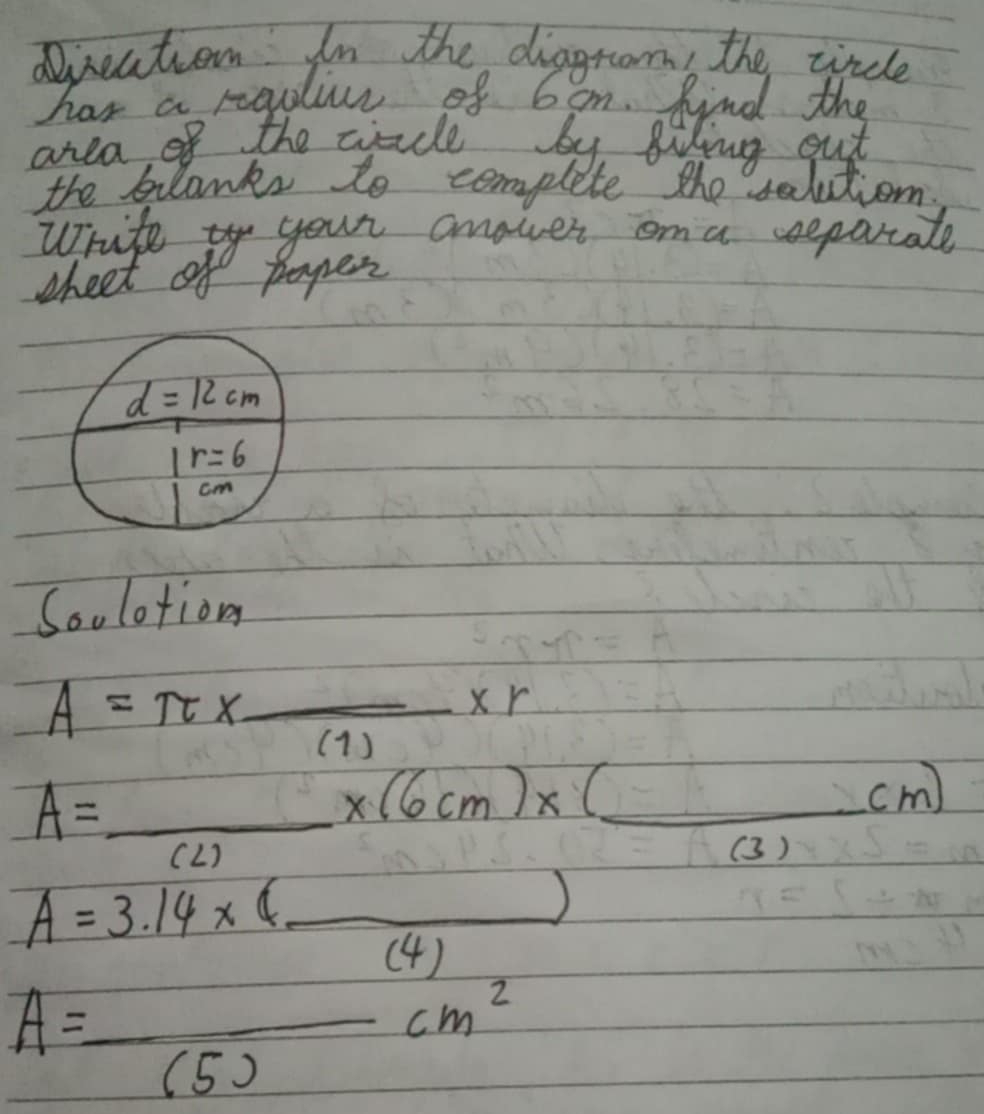 Direction: In the diagram, the circle
has a radius of 6cm. find the
area of the circle by filing out
the blanks to complete the salution.
Write your answer on a separate
sheet of paper
d = 12 cm
r=6
cm
Soulotion
A = π x ______ x r
(1)
A = ______ x (6cm) x (______ cm)
(2) (3)
A = 3.14 x (______)
(4)
A = ______ cm²
(5)